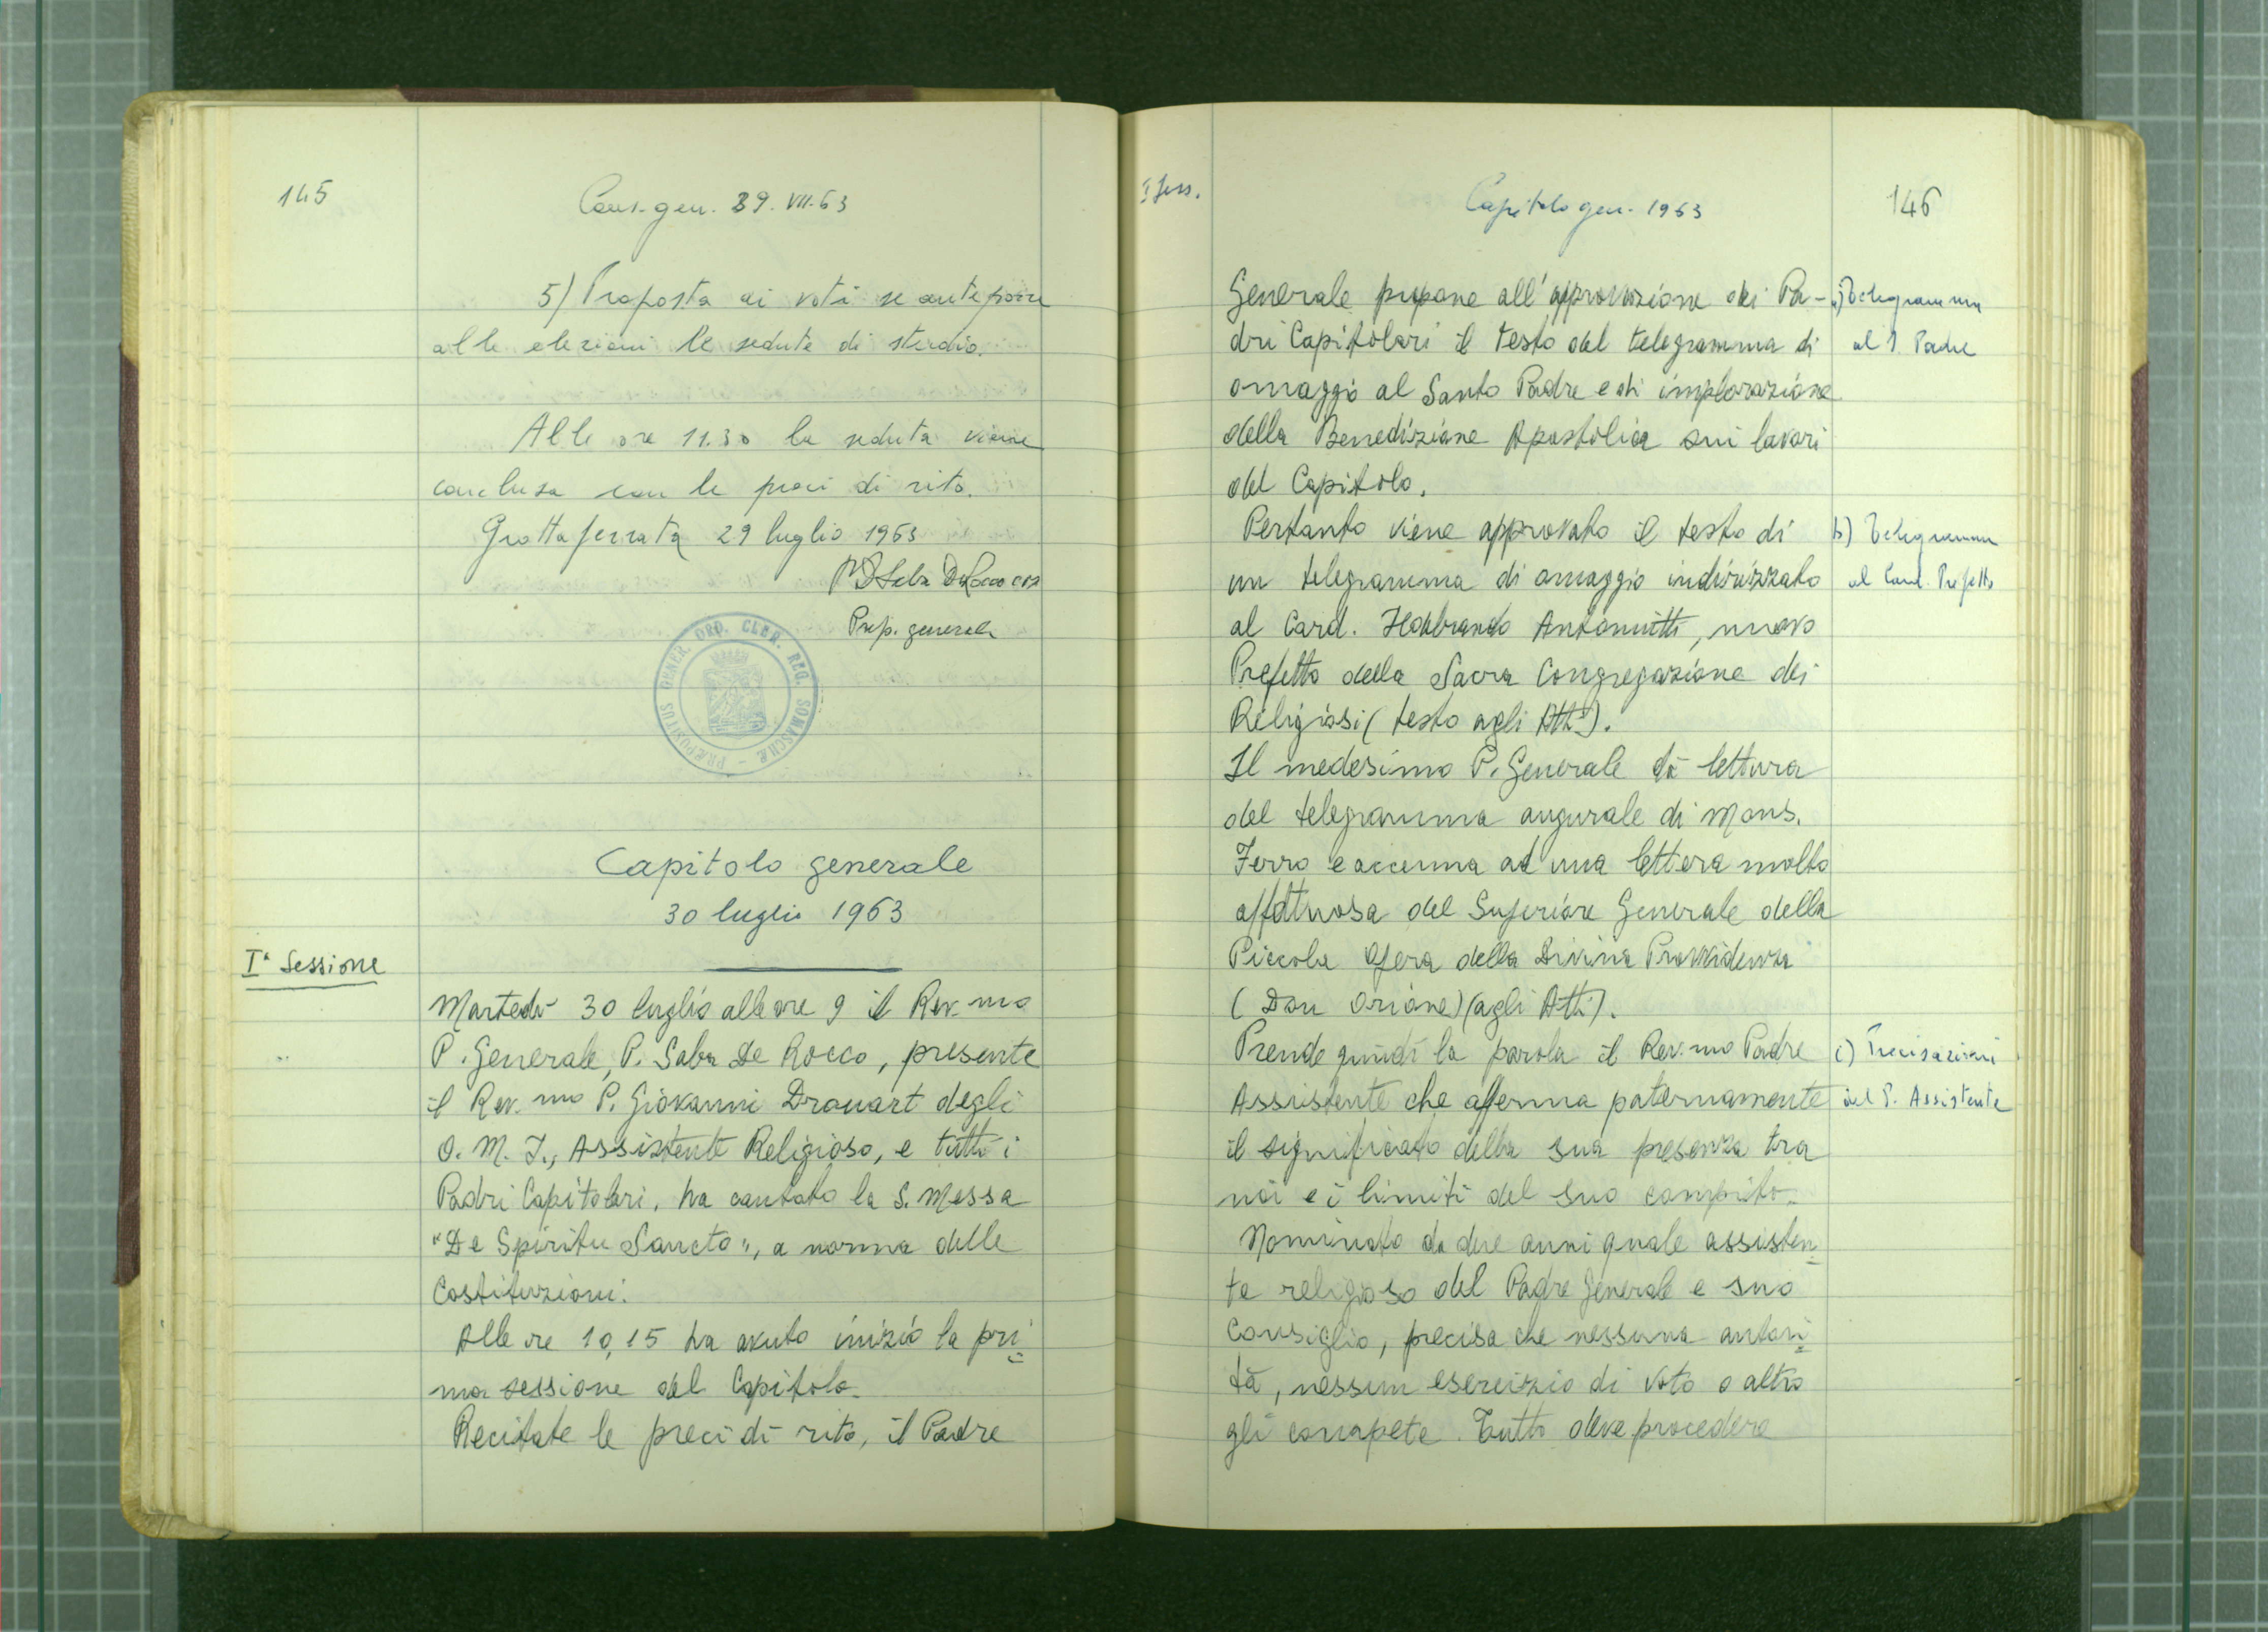 145
Cons. gen. 29. VII. 63
5) Proposta ai voti se anteporre
alle elezioni le sedute di studio.
Alle ore 11.30 la seduta viene
conclusa con le preci di rito.
Grottaferrata 29 luglio 1963
P. Saba De Rocco crs
Prep. generale
PRÆPOSITUS GENER. ORD. CLER. REG. SOMASCHÆ
Capitolo generale
30 luglio 1963
Iª Sessione
Martedì 30 luglio alle ore 9 il Rev.mo
P. Generale, P. Saba De Rocco, presente
il Rev.mo P. Giovanni Drouart degli
O. M. I., Assistente Religioso, e tutti i
Padri Capitolari, ha cantato la S. Messa
"De Spiritu Sancto", a norma delle
Costituzioni.
Alle ore 10,15 ha avuto inizio la pri=
ma sessione del Capitolo.
Recitate le preci di rito, il Padre
I Sess.
Capitolo gen. 1963
146
Generale propone all'approvazione dei Pa-
dri Capitolari il testo del telegramma di
omaggio al Santo Padre e di implorazione
della Benedizione Apostolica sui lavori
del Capitolo.
a) Telegramma
al S. Padre
Pertanto viene approvato il testo di
un telegramma di omaggio indirizzato
al Card. Ildebrando Antoniutti, nuovo
Prefetto della Sacra Congregazione dei
Religiosi (testo agli Atti).
b) Telegramma
al Card. Prefetto
Il medesimo P. Generale dà lettura
del telegramma augurale di Mons.
Ferro e accenna ad una lettera molto
affettuosa del Superiore Generale della
Piccola Opera della Divina Provvidenza
(Don Orione) (agli Atti).
Prende quindi la parola il Rev.mo Padre
Assistente che afferma paternamente
il significato della sua presenza tra
noi e i limiti del suo compito.
c) Precisazioni
del P. Assistente
Nominato da due anni quale assisten=
te religioso del Padre Generale e suo
Consiglio, precisa che nessuna autori=
tà, nessun esercizio di voto o altro
gli compete. Tutto deve procedere